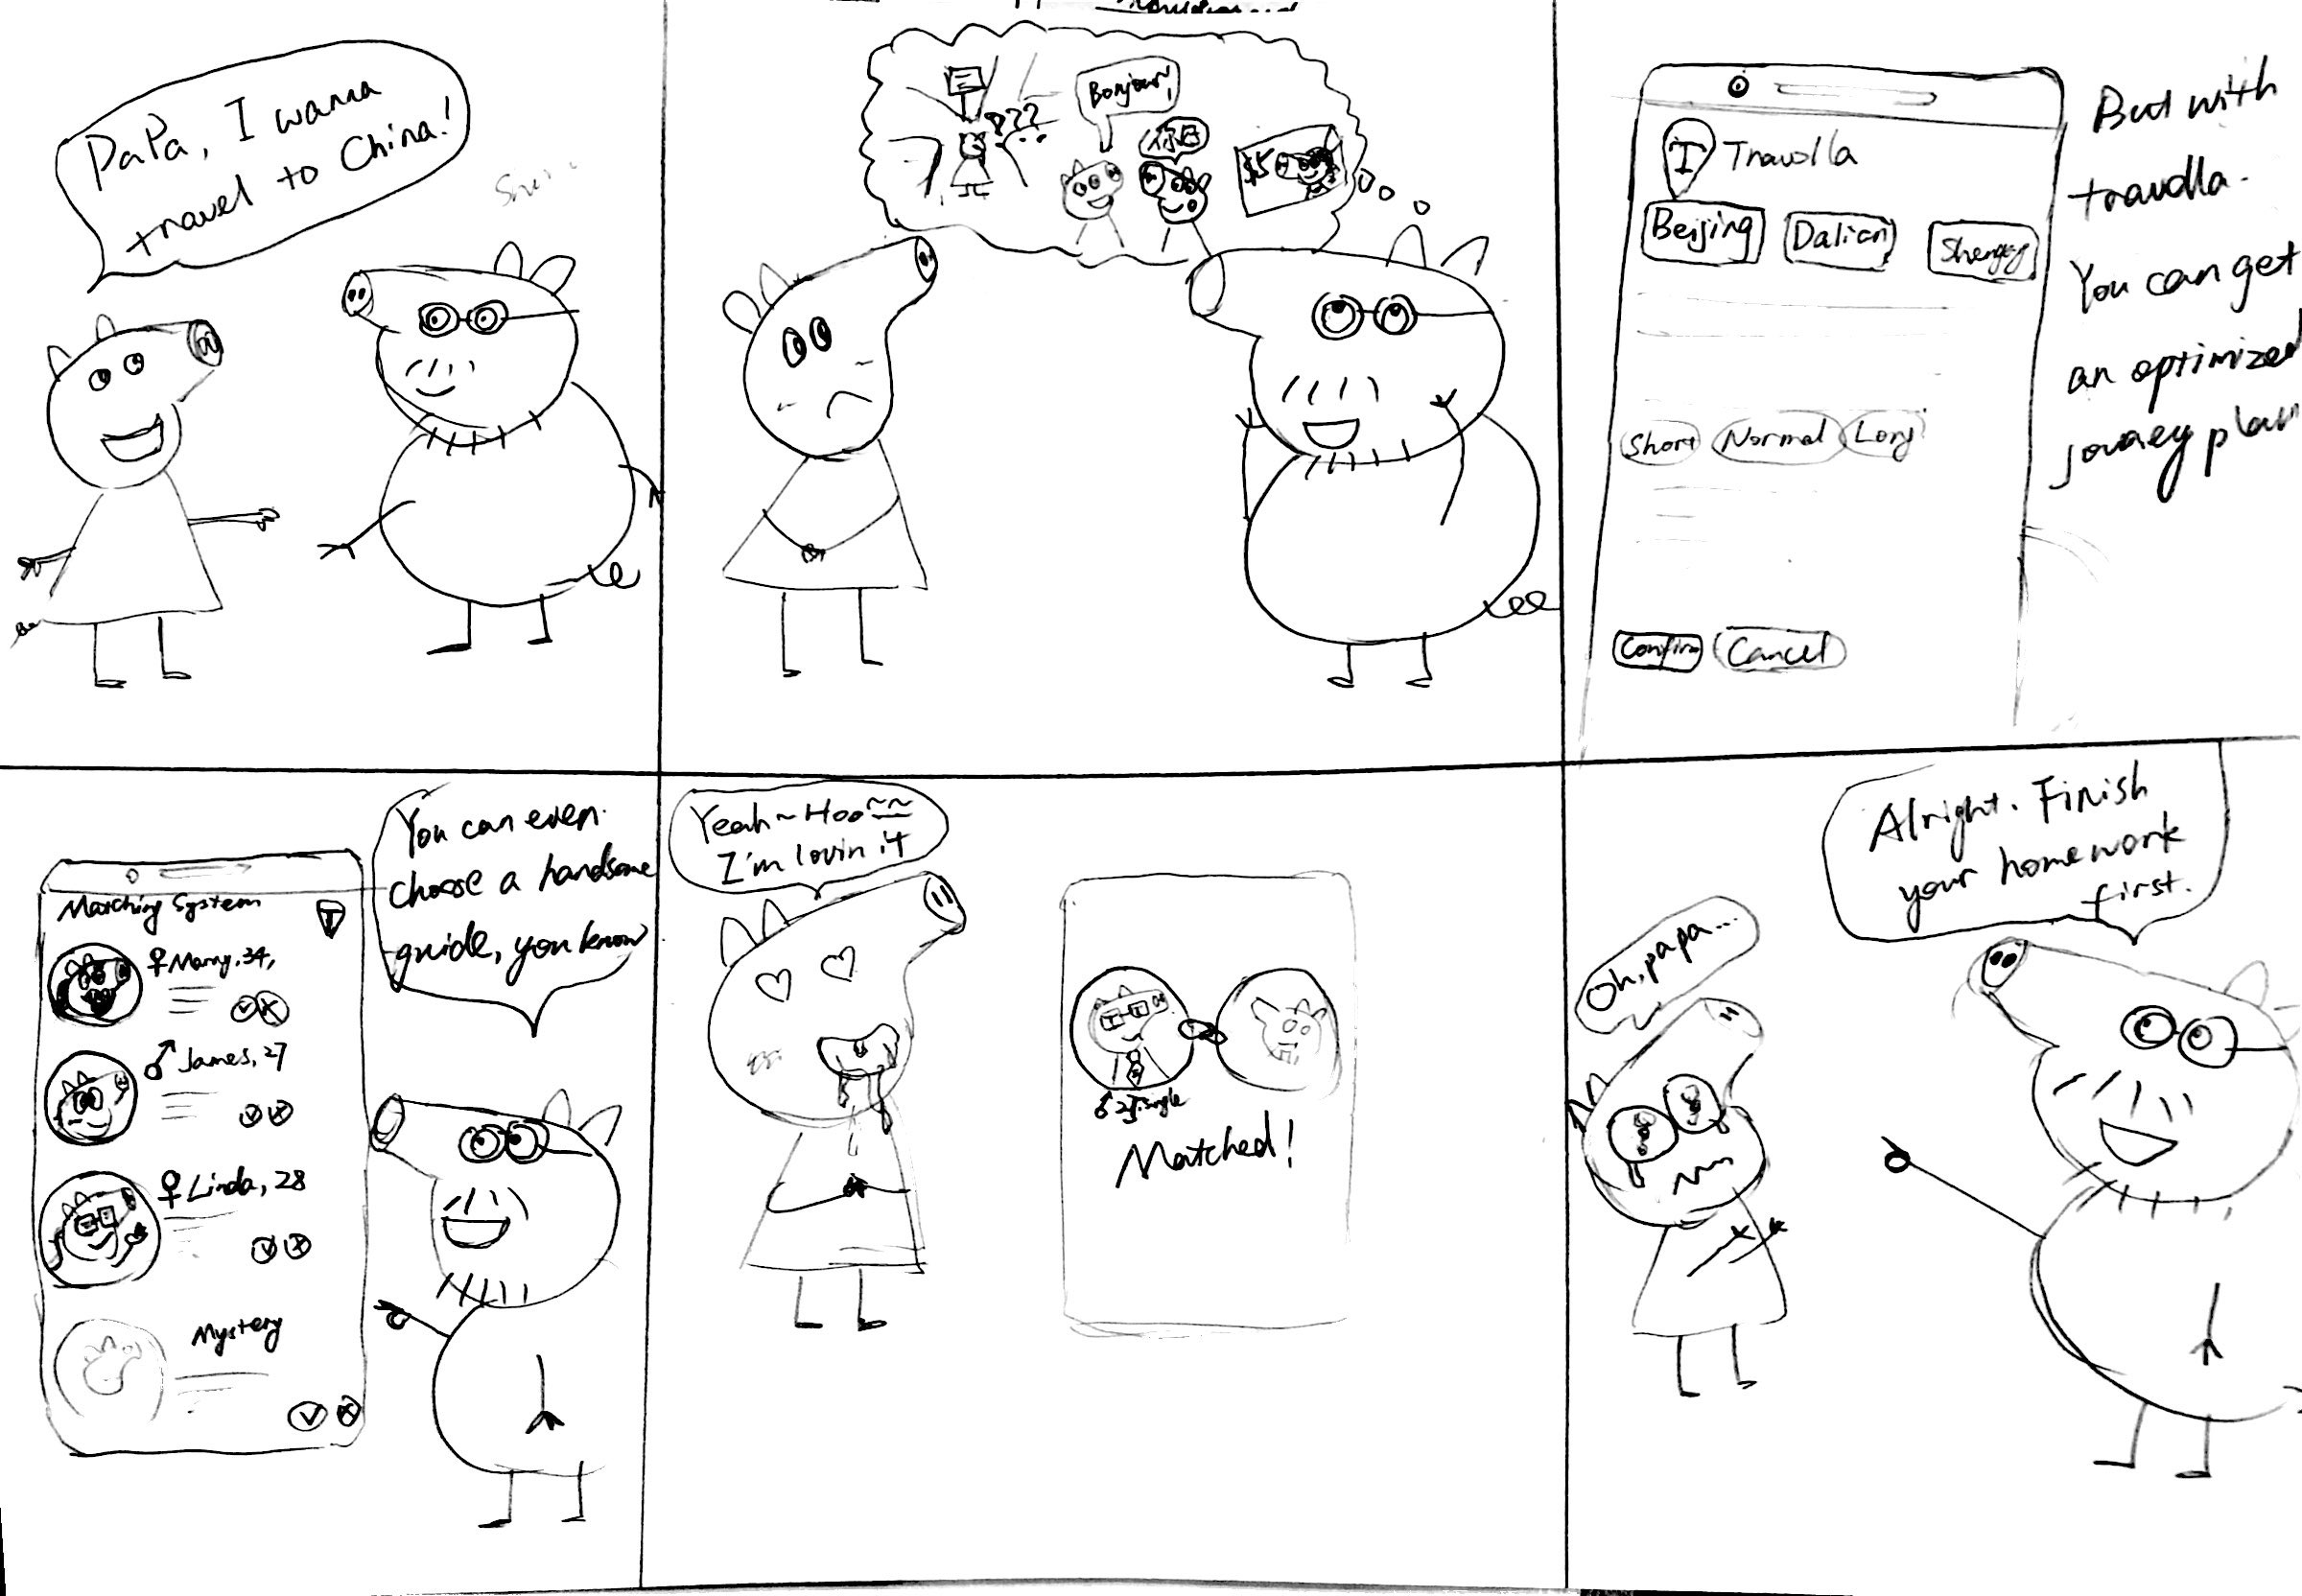 PaPa, I wanna
travel to China!
???
Bonjour!
$5
T Travolla
Beijing
Dalian
Short
Normal
Long
Confirm
Cancel
But with
travolla.
You can get
an optimized
plan
Matching System
T
♀Marry,34,
♂James,27
♀Linda,28
Mystery
You can even
choose a handsome
guide, you know
Yeah~Hoo~~
I'm lovin it
Matched!
Oh, papa...
Alright. Finish
your homework
first.